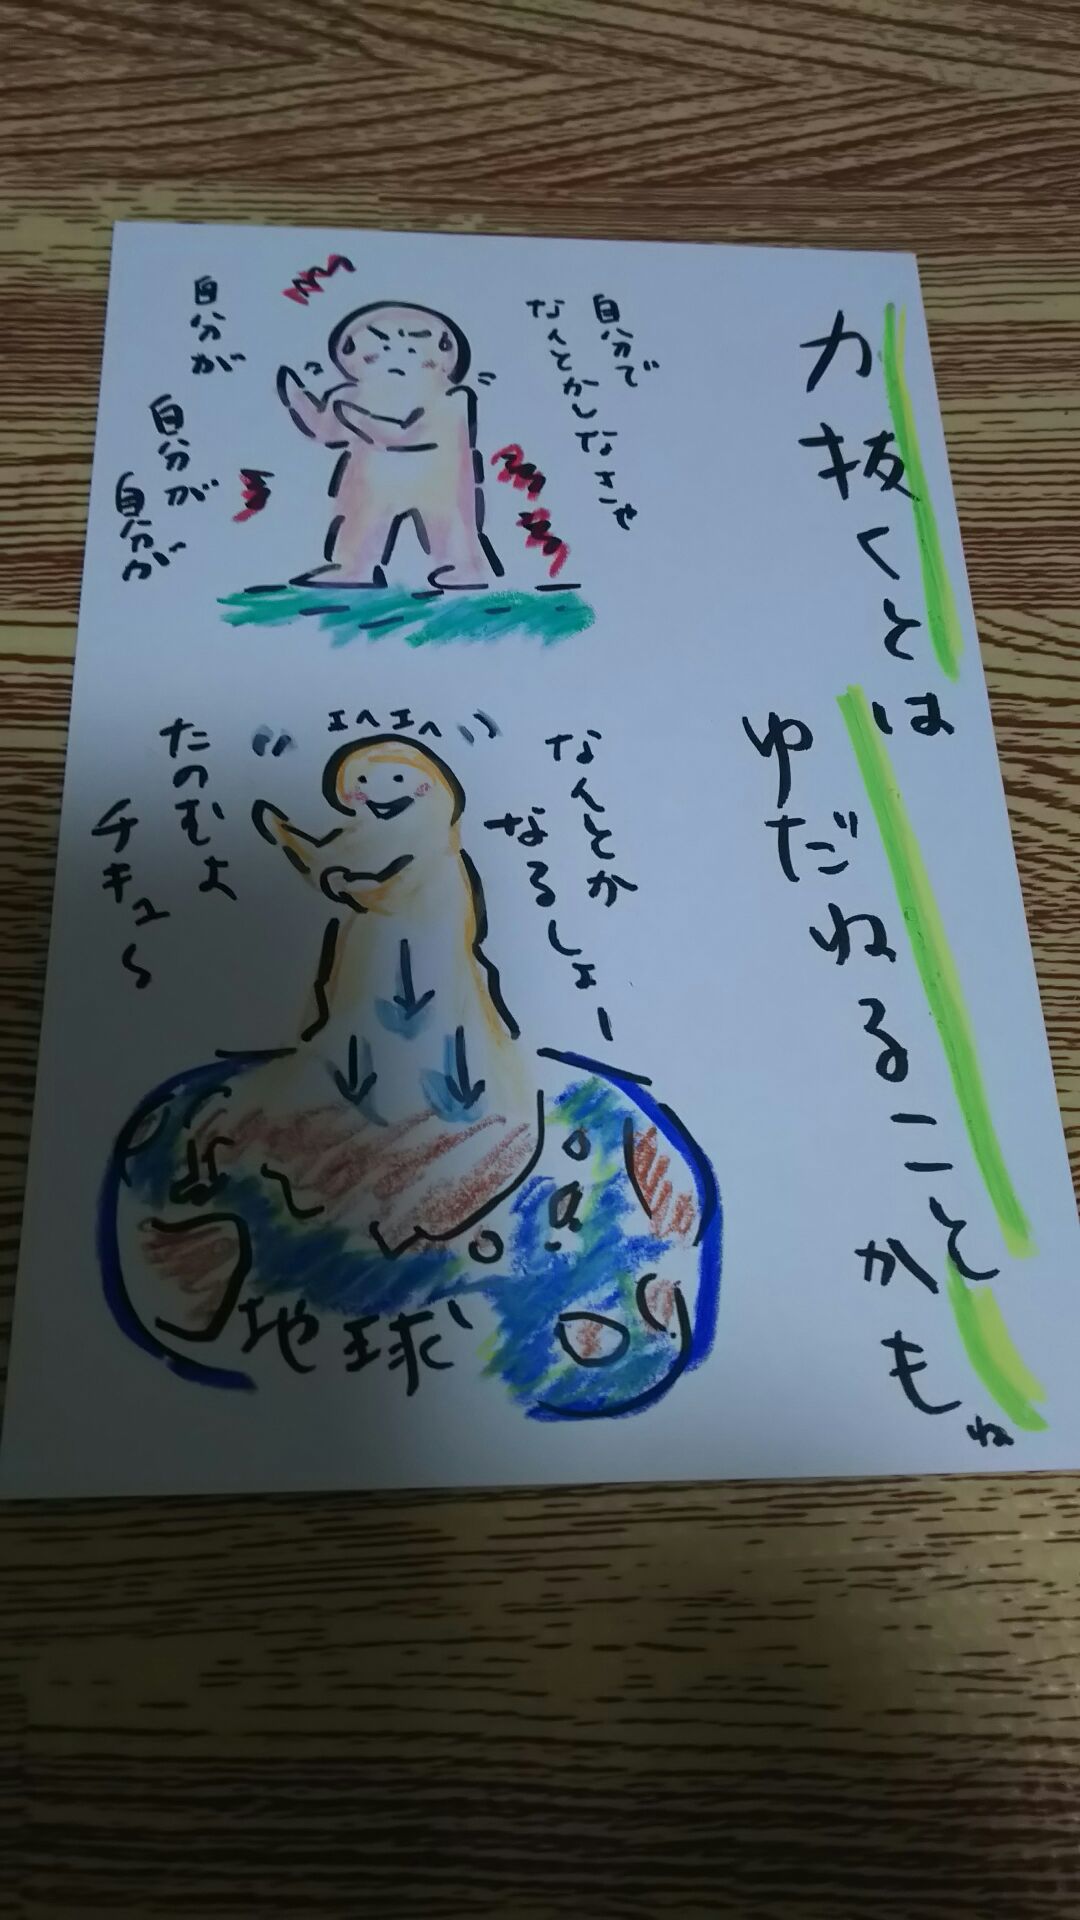 力抜くとは
ゆだねること
かも。
ね
自分で
なんとかしなきゃ
自分が
自分が
自分が
エヘエヘ
なんとか
なるしょー
たのむよ
チキュ〜
地球